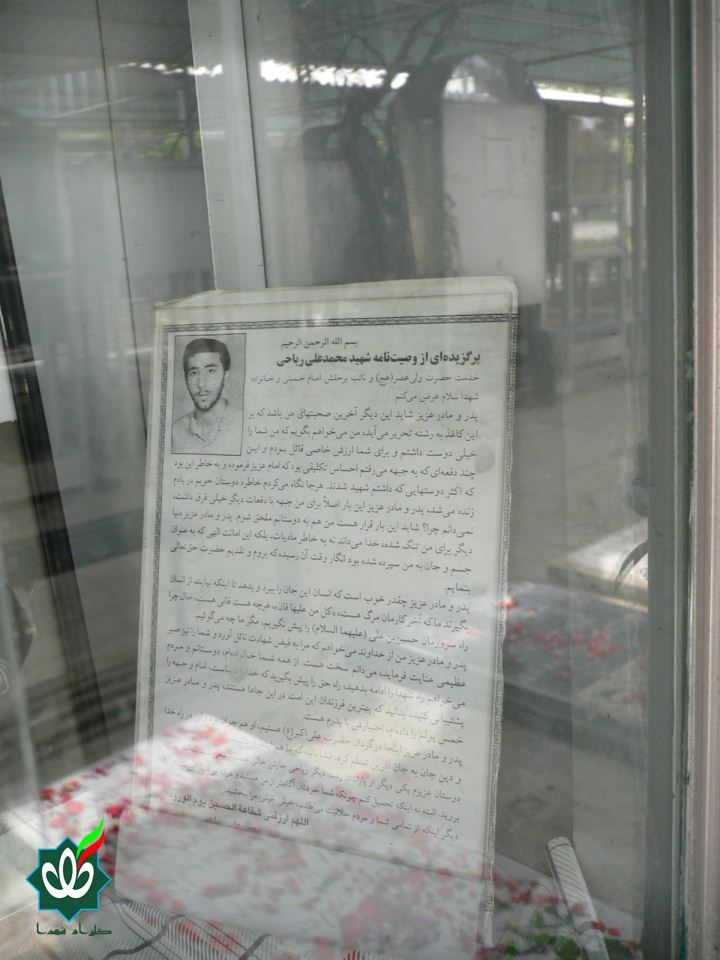 بسم الله الرحمن الرحیم
برگزیده‌ای از وصیت‌نامه شهید محمدعلی ریاحی
خدمت حضرت ولی‌عصر(عج) و نائب برحقش امام خمینی و خانواده
شهدا سلام عرض می‌کنم
پدر و مادر عزیز شاید این دیگر آخرین صحبتهای من باشد که بر
این کاغذ به رشته تحریر می‌آید، من می‌خواهم بگویم که من شما را
خیلی دوست داشتم و برای شما ارزش خاصی قائل بودم و این
چند دفعه‌ای که به جبهه می‌رفتم احساس تکلیفی بود که امام عزیز فرموده و به خاطر این بود
که اکثر دوستهایی که داشتم شهید شدند. هرجا نگاه می‌کردم خاطره دوستان خوبم در یادم
زنده می‌شد، پدر و مادر عزیز این بار اصلاً برای من جبهه با دفعات دیگر خیلی فرق داشت،
نمی‌دانم چرا؟ شاید این بار قرار هست من هم به دوستانم ملحق شوم. پدر و مادر عزیز دنیا
دیگر برای من تنگ شده، خدا می‌داند نه به خاطر مادیات، بلکه این امانت الهی که به عنوان
جسم و جان به من سپرده شده بود انگار وقت آن رسیده که بروم و تقدیم حضرت حق‌تعالی
بنمایم.
پدر و مادر عزیز چقدر خوب است که انسان این جان را ببرد و بدهد تا اینکه بیایند از انسان
بگیرند ما که آخر کارمان مرگ هست، «کل من علیها فان»، هرچه هست فانی هست، حال چرا
راه سرورمان حسین‌بن علی (علیهما السلام) را پیش نگیریم، مگر ما چه می‌گوئیم.
پدر و مادر عزیز من از خداوند می‌خواهم که مرا به فیض شهادت نائل آورد و شما را نیز صبر
عظیمی عنایت فرماید، می‌دانم سخت هست. از همه شما خانواده‌ام، دوستانم و مردم
می‌خواهم راه شهدا را ادامه بدهید، راه حق را پیش بگیرید که خدا با شماست، امام و جبهه را
پشتیبانی کنید، بدانید که بهترین فرزندان این امت در این جاها هستند، پدر و مادر عزیز
خمس پولم را داده‌ام، اختیارش با پدرم هست
پدر و مادر عزیز اینجا در گردان حضرت علی‌اکبر(ع) هستیم، او هم جوان بود در راه خدا
و دین جان به جان آفرین تسلم کرد. انشاءالله که ما هم
دوستان عزیزم یکی دیگر از یارتان رفت دیگر ریاحی جایش خالی
بروید. البته نه اینکه تحمیل کنم چونکه شما خودتان آگاهتر از من هستید
دیگر اینکه از تمامی شما و مردم حلالیت می‌طلبم، خیلی خیلی مرا ببخشید.
اللهم ارزقنی شفاعة الحسین یوم الورود
گلزار شهدا